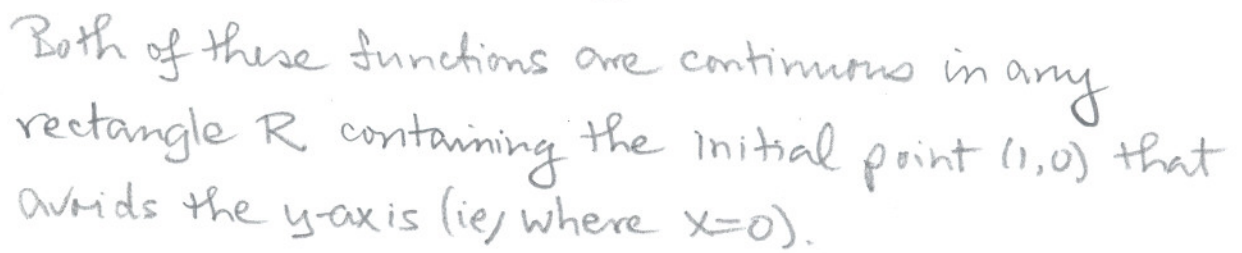 Both of these functions are continuous in any
rectangle R containing the initial point (1,0) that
avoids the y-axis (ie, where x=0).